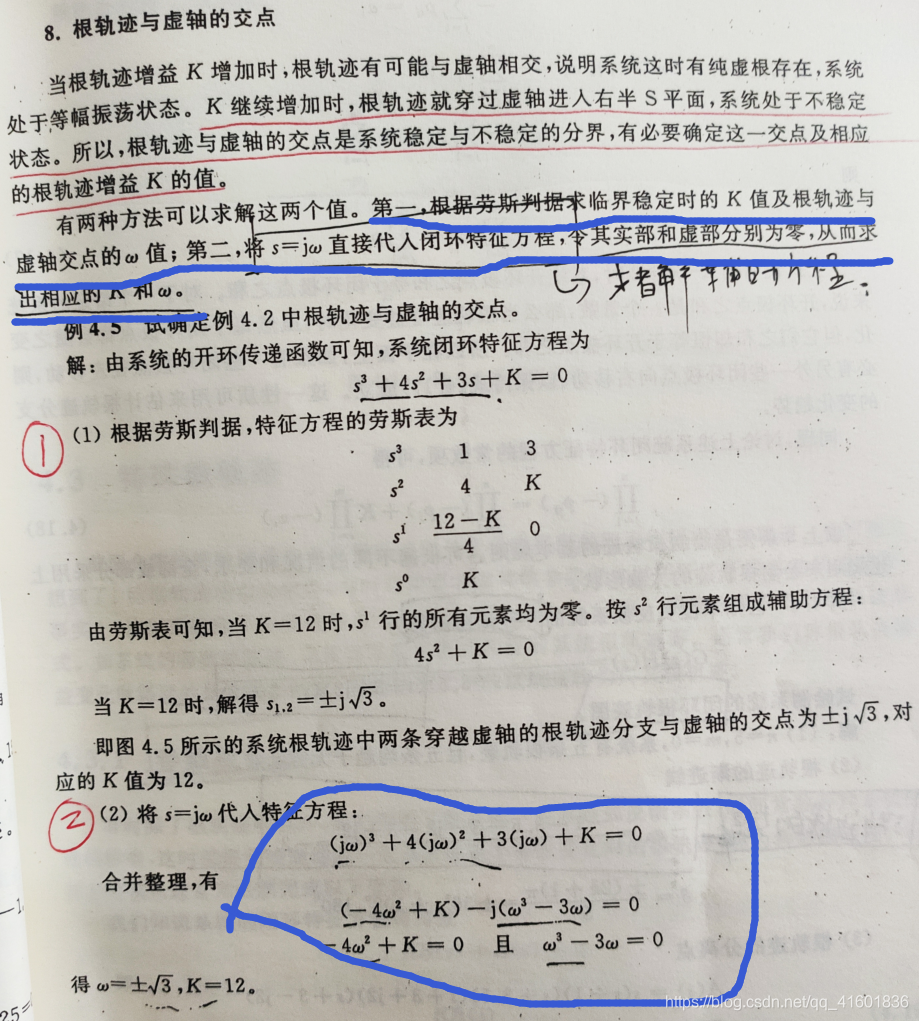 8. 根轨迹与虚轴的交点
当根轨迹增益 K 增加时,根轨迹有可能与虚轴相交,说明系统这时有纯虚根存在,系统
处于等幅振荡状态。K 继续增加时,根轨迹就穿过虚轴进入右半 S 平面,系统处于不稳定
状态。所以,根轨迹与虚轴的交点是系统稳定与不稳定的分界,有必要确定这一交点及相应
的根轨迹增益 K 的值。
有两种方法可以求解这两个值。第一,根据劳斯判据求临界稳定时的 K 值及根轨迹与
虚轴交点的 ω 值;第二,将 s=jω 直接代入闭环特征方程,令其实部和虚部分别为零,从而求
出相应的 K 和 ω。
例 4.5 试确定例 4.2 中根轨迹与虚轴的交点。
解:由系统的开环传递函数可知,系统闭环特征方程为
s³ + 4s² + 3s + K = 0
① (1) 根据劳斯判据,特征方程的劳斯表为
s³ 1 3
s² 4 K
s¹ (12 − K)/4 0
s⁰ K
由劳斯表可知,当 K=12 时,s¹ 行的所有元素均为零。按 s² 行元素组成辅助方程:
4s² + K = 0
当 K=12 时,解得 s₁,₂=±j√3。
即图 4.5 所示的系统根轨迹中两条穿越虚轴的根轨迹分支与虚轴的交点为 ±j√3,对
应的 K 值为 12。
② (2) 将 s=jω 代入特征方程:
(jω)³ + 4(jω)² + 3(jω) + K = 0
合并整理,有
(− 4ω² + K) − j(ω³ − 3ω) = 0
− 4ω² + K = 0 且 ω³ − 3ω = 0
得 ω=±√3,K=12。
25=
https://blog.csdn.net/qq_41601836